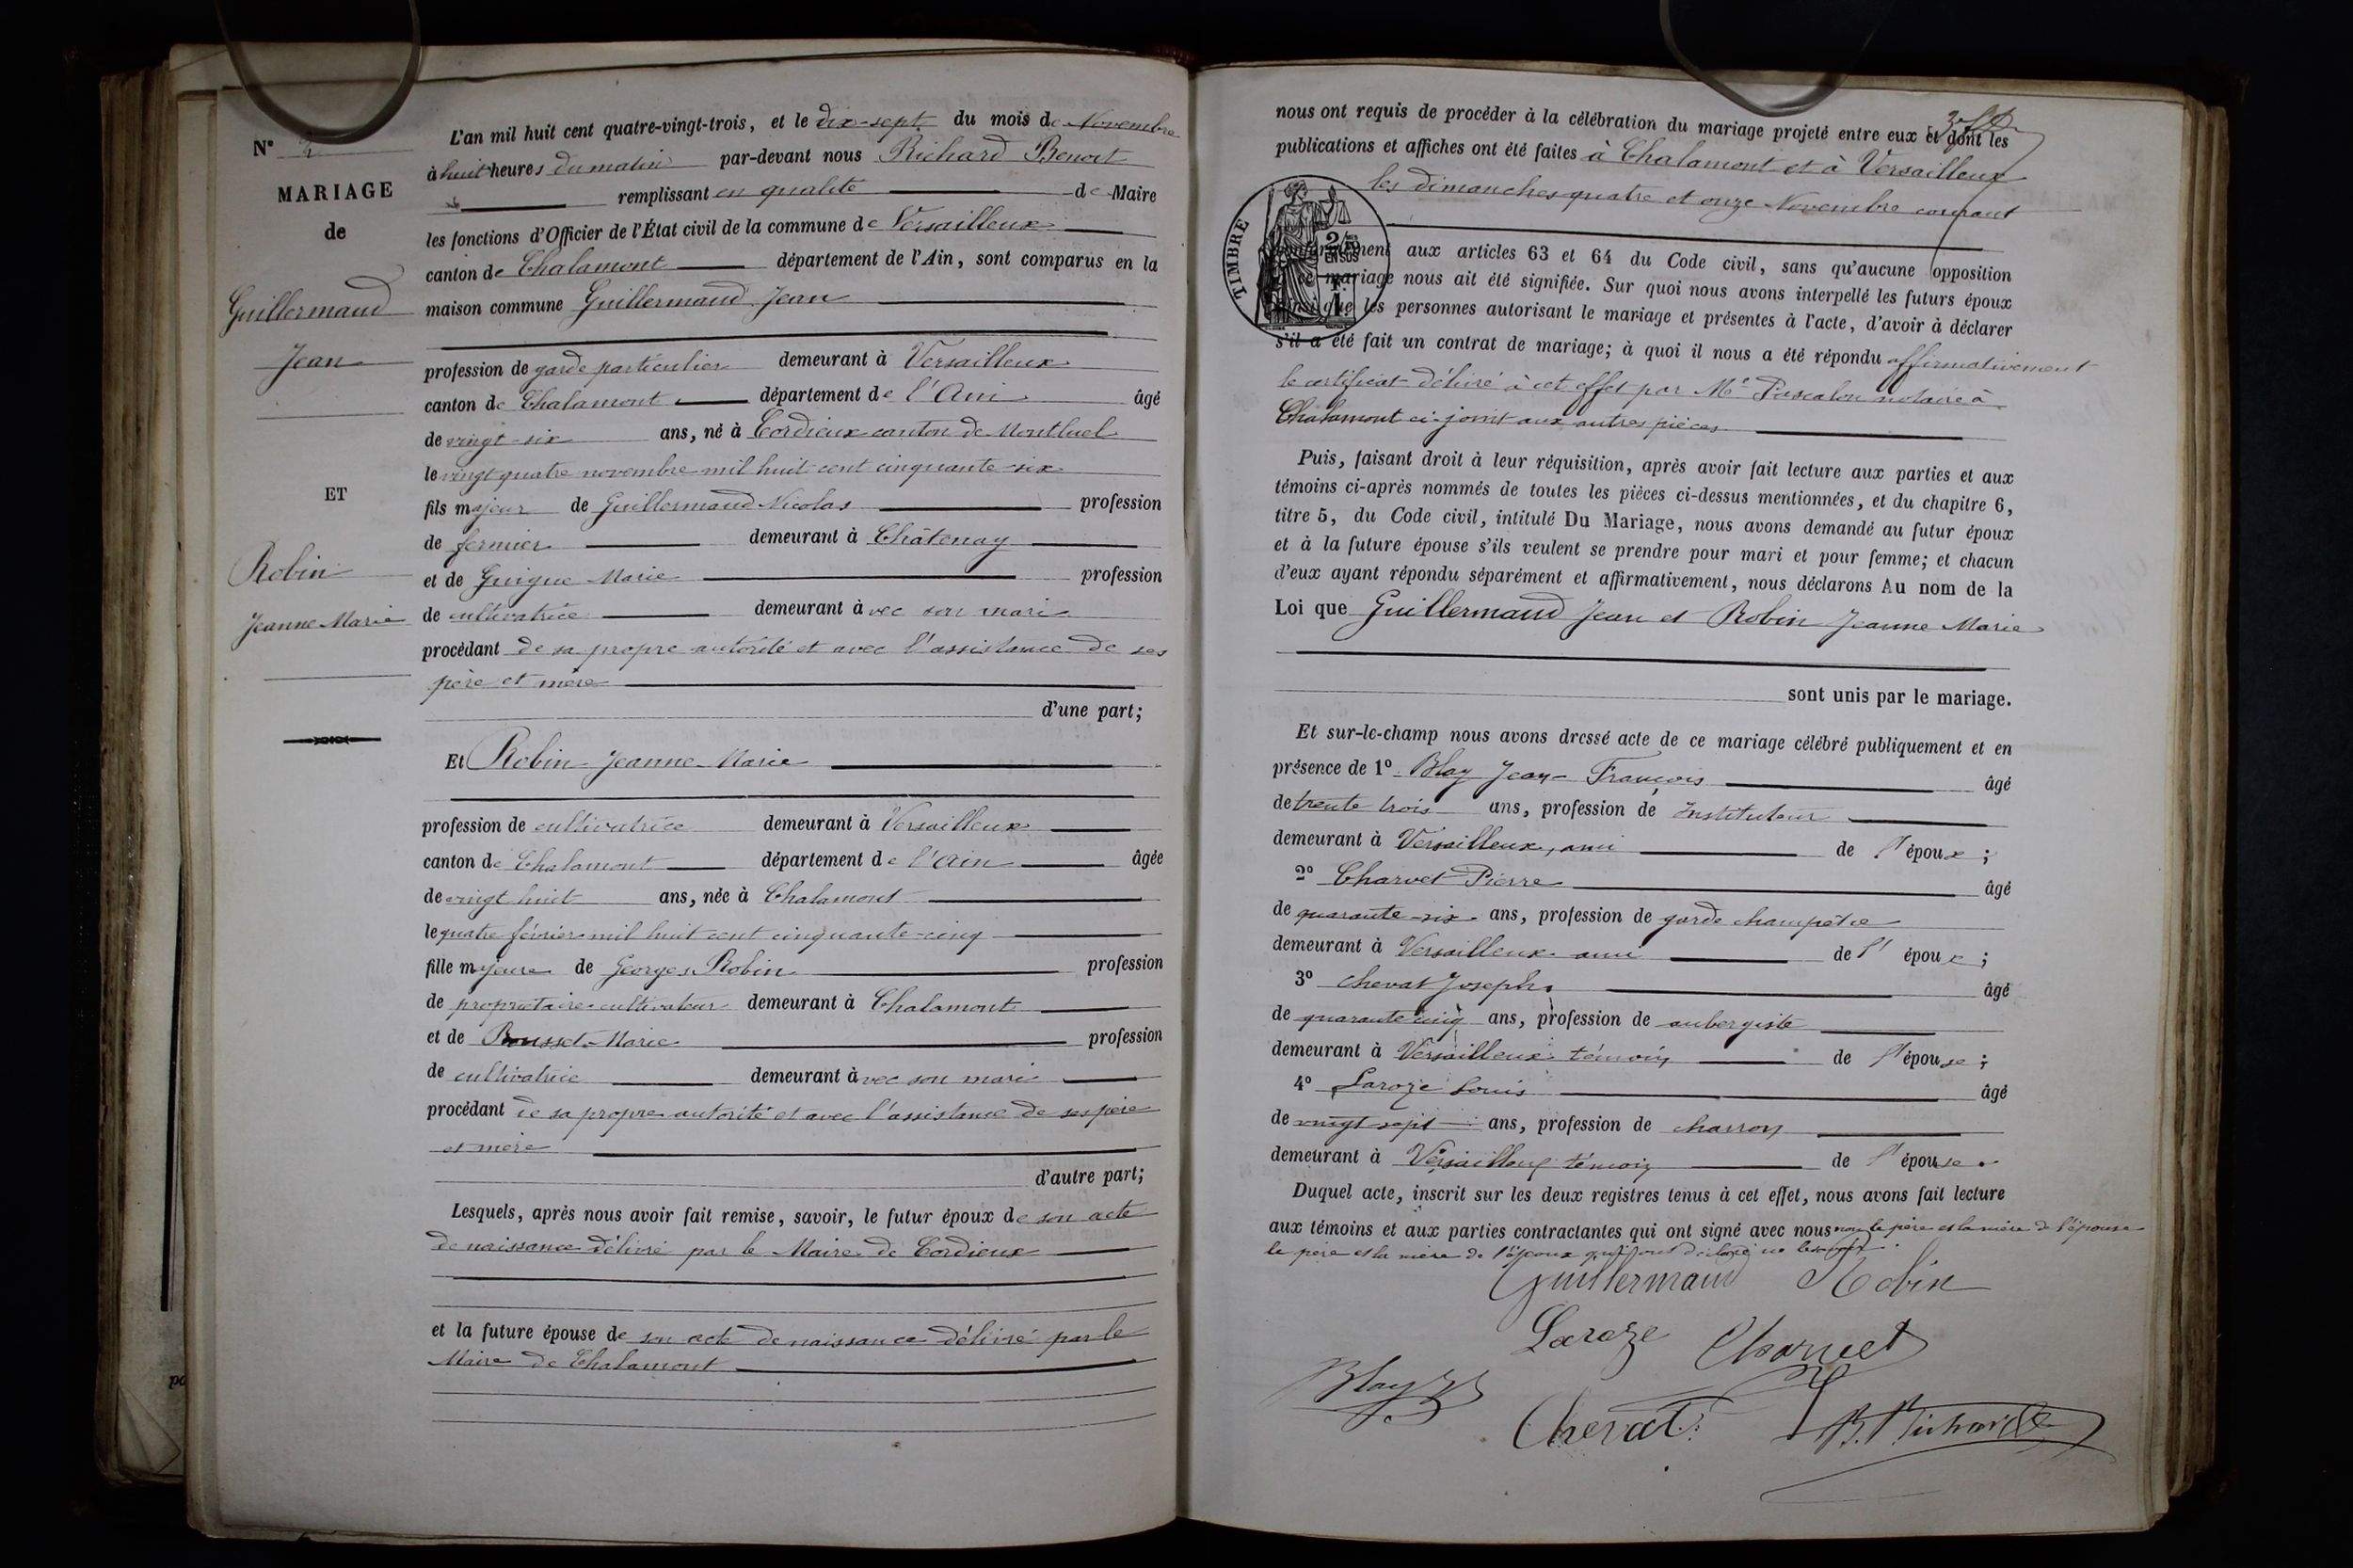 N° 2
MARIAGE
de
Guillermaud
Jean
ET
Robin
Jeanne Marie
L'an mil huit cent quatre-vingt-trois, et le dix-sept du mois de Novembre
à huit heures du matin par-devant nous Richard Benoit
remplissant en qualité de Maire
les fonctions d'Officier de l'État civil de la commune de Versailleux
canton de Chalamont département de l'Ain, sont comparus en la
maison commune Guillermaud Jean
profession de garde particulier demeurant à Versailleux
canton de Chalamont département de l'Ain âgé
de vingt-six ans, né à Cordieux canton de Montluel
le vingt quatre novembre mil huit cent cinquante-six
fils majeur de Guillermaud Nicolas profession
de fermier demeurant à Châtenay
et de Guigue Marie profession
de cultivatrice demeurant avec son mari
procédant de sa propre autorité et avec l'assistance de ses
père et mère
d'une part;
Et Robin Jeanne Marie
profession de cultivatrice demeurant à Versailleux
canton de Chalamont département de l'Ain âgée
de vingt huit ans, née à Chalamont
le quatre février mil huit cent cinquante-cinq
fille majeure de Georges Robin profession
de propriétaire-cultivateur demeurant à Chalamont
et de Rousset Marie profession
de cultivatrice demeurant avec son mari
procédant de sa propre autorité et avec l'assistance de ses père
et mère
d'autre part;
Lesquels, après nous avoir fait remise, savoir, le futur époux de son acte
de naissance délivré par le Maire de Cordieux
et la future épouse de son acte de naissance délivré par le
Maire de Chalamont
nous ont requis de procéder à la célébration du mariage projeté entre eux et dont les
publications et affiches ont été faites à Chalamont et à Versailleux
les dimanches quatre et onze Novembre courant
TIMBRE
conformément aux articles 63 et 64 du Code civil, sans qu'aucune opposition
mariage nous ait été signifiée. Sur quoi nous avons interpellé les futurs époux
ainsi que les personnes autorisant le mariage et présentes à l'acte, d'avoir à déclarer
s'il a été fait un contrat de mariage; à quoi il nous a été répondu affirmativement
le certificat délivré à cet effet par Me Pascalon notaire à
Chalamont ci-joint aux autres pièces
Puis, faisant droit à leur réquisition, après avoir fait lecture aux parties et aux
témoins ci-après nommés de toutes les pièces ci-dessus mentionnées, et du chapitre 6,
titre 5, du Code civil, intitulé Du Mariage, nous avons demandé au futur époux
et à la future épouse s'ils veulent se prendre pour mari et pour femme; et chacun
d'eux ayant répondu séparément et affirmativement, nous déclarons Au nom de la
Loi que Guillermaud Jean et Robin Jeanne Marie
sont unis par le mariage.
Et sur-le-champ nous avons dressé acte de ce mariage célébré publiquement et en
présence de 1° Blay Jean François âgé
de trente trois ans, profession de Instituteur
demeurant à Versailleux, ami de l'époux;
2° Charvet Pierre âgé
de quarante-six ans, profession de garde champêtre
demeurant à Versailleux ami de l'époux;
3° Chevat Joseph âgé
de quarante cinq ans, profession de aubergiste
demeurant à Versailleux témoin de l'épouse;
4° Laroze Louis âgé
de vingt sept ans, profession de charron
demeurant à Versailleux témoin de l'épouse.
Duquel acte, inscrit sur les deux registres tenus à cet effet, nous avons fait lecture
aux témoins et aux parties contractantes qui ont signé avec nous non le père et la mère de l'épouse
le père et la mère de l'époux qui ont déclaré ne le savoir.
Guillermaud Robin
Laroze Charvet
Blay
Chevat B. Richard